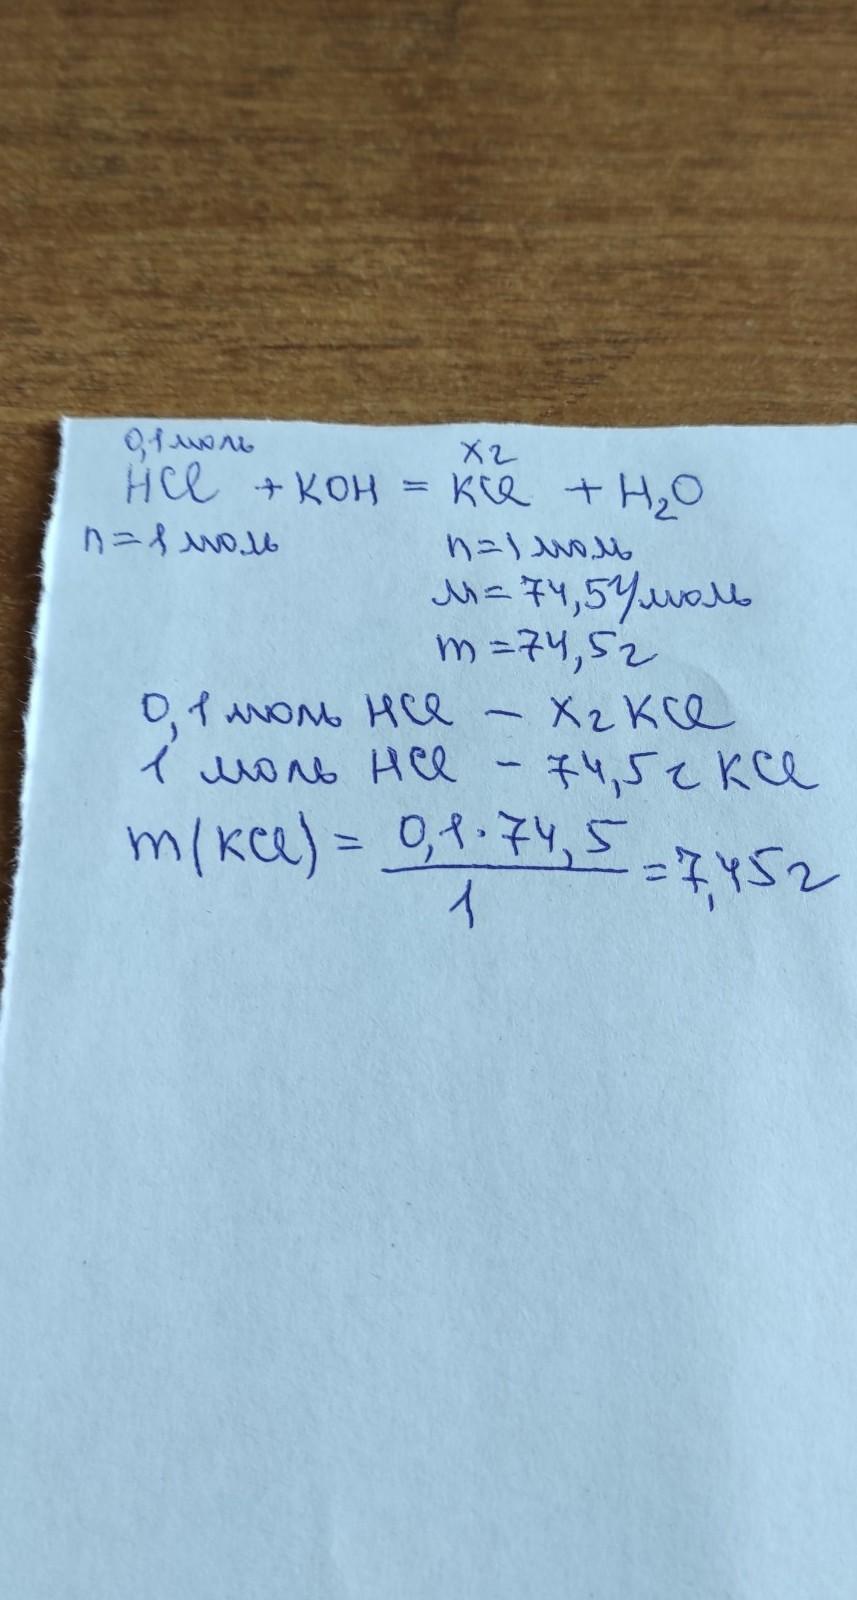 0,1 моль х г
HCl + KOH = KCl + H₂O
n = 1 моль n = 1 моль
М = 74,5 г/моль
m = 74,5 г
0,1 моль HCl – х г KCl
1 моль HCl – 74,5 г KCl
m(KCl) = 0,1 · 74,5 / 1 = 7,45 г